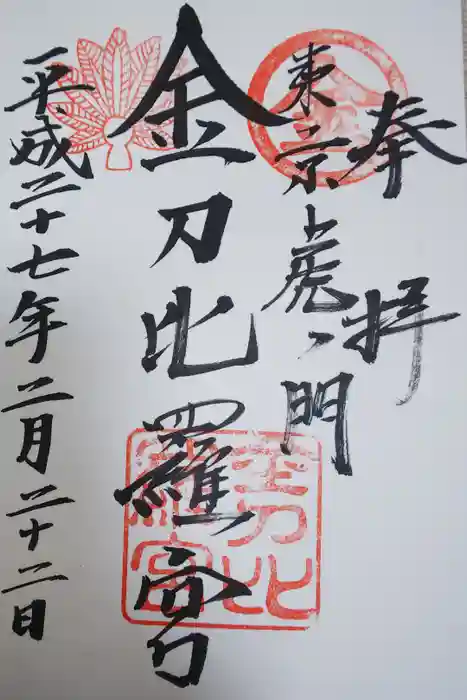 奉拝
東京虎ノ門
金刀比羅宮
平成二十七年二月二十二日
金刀比羅宮